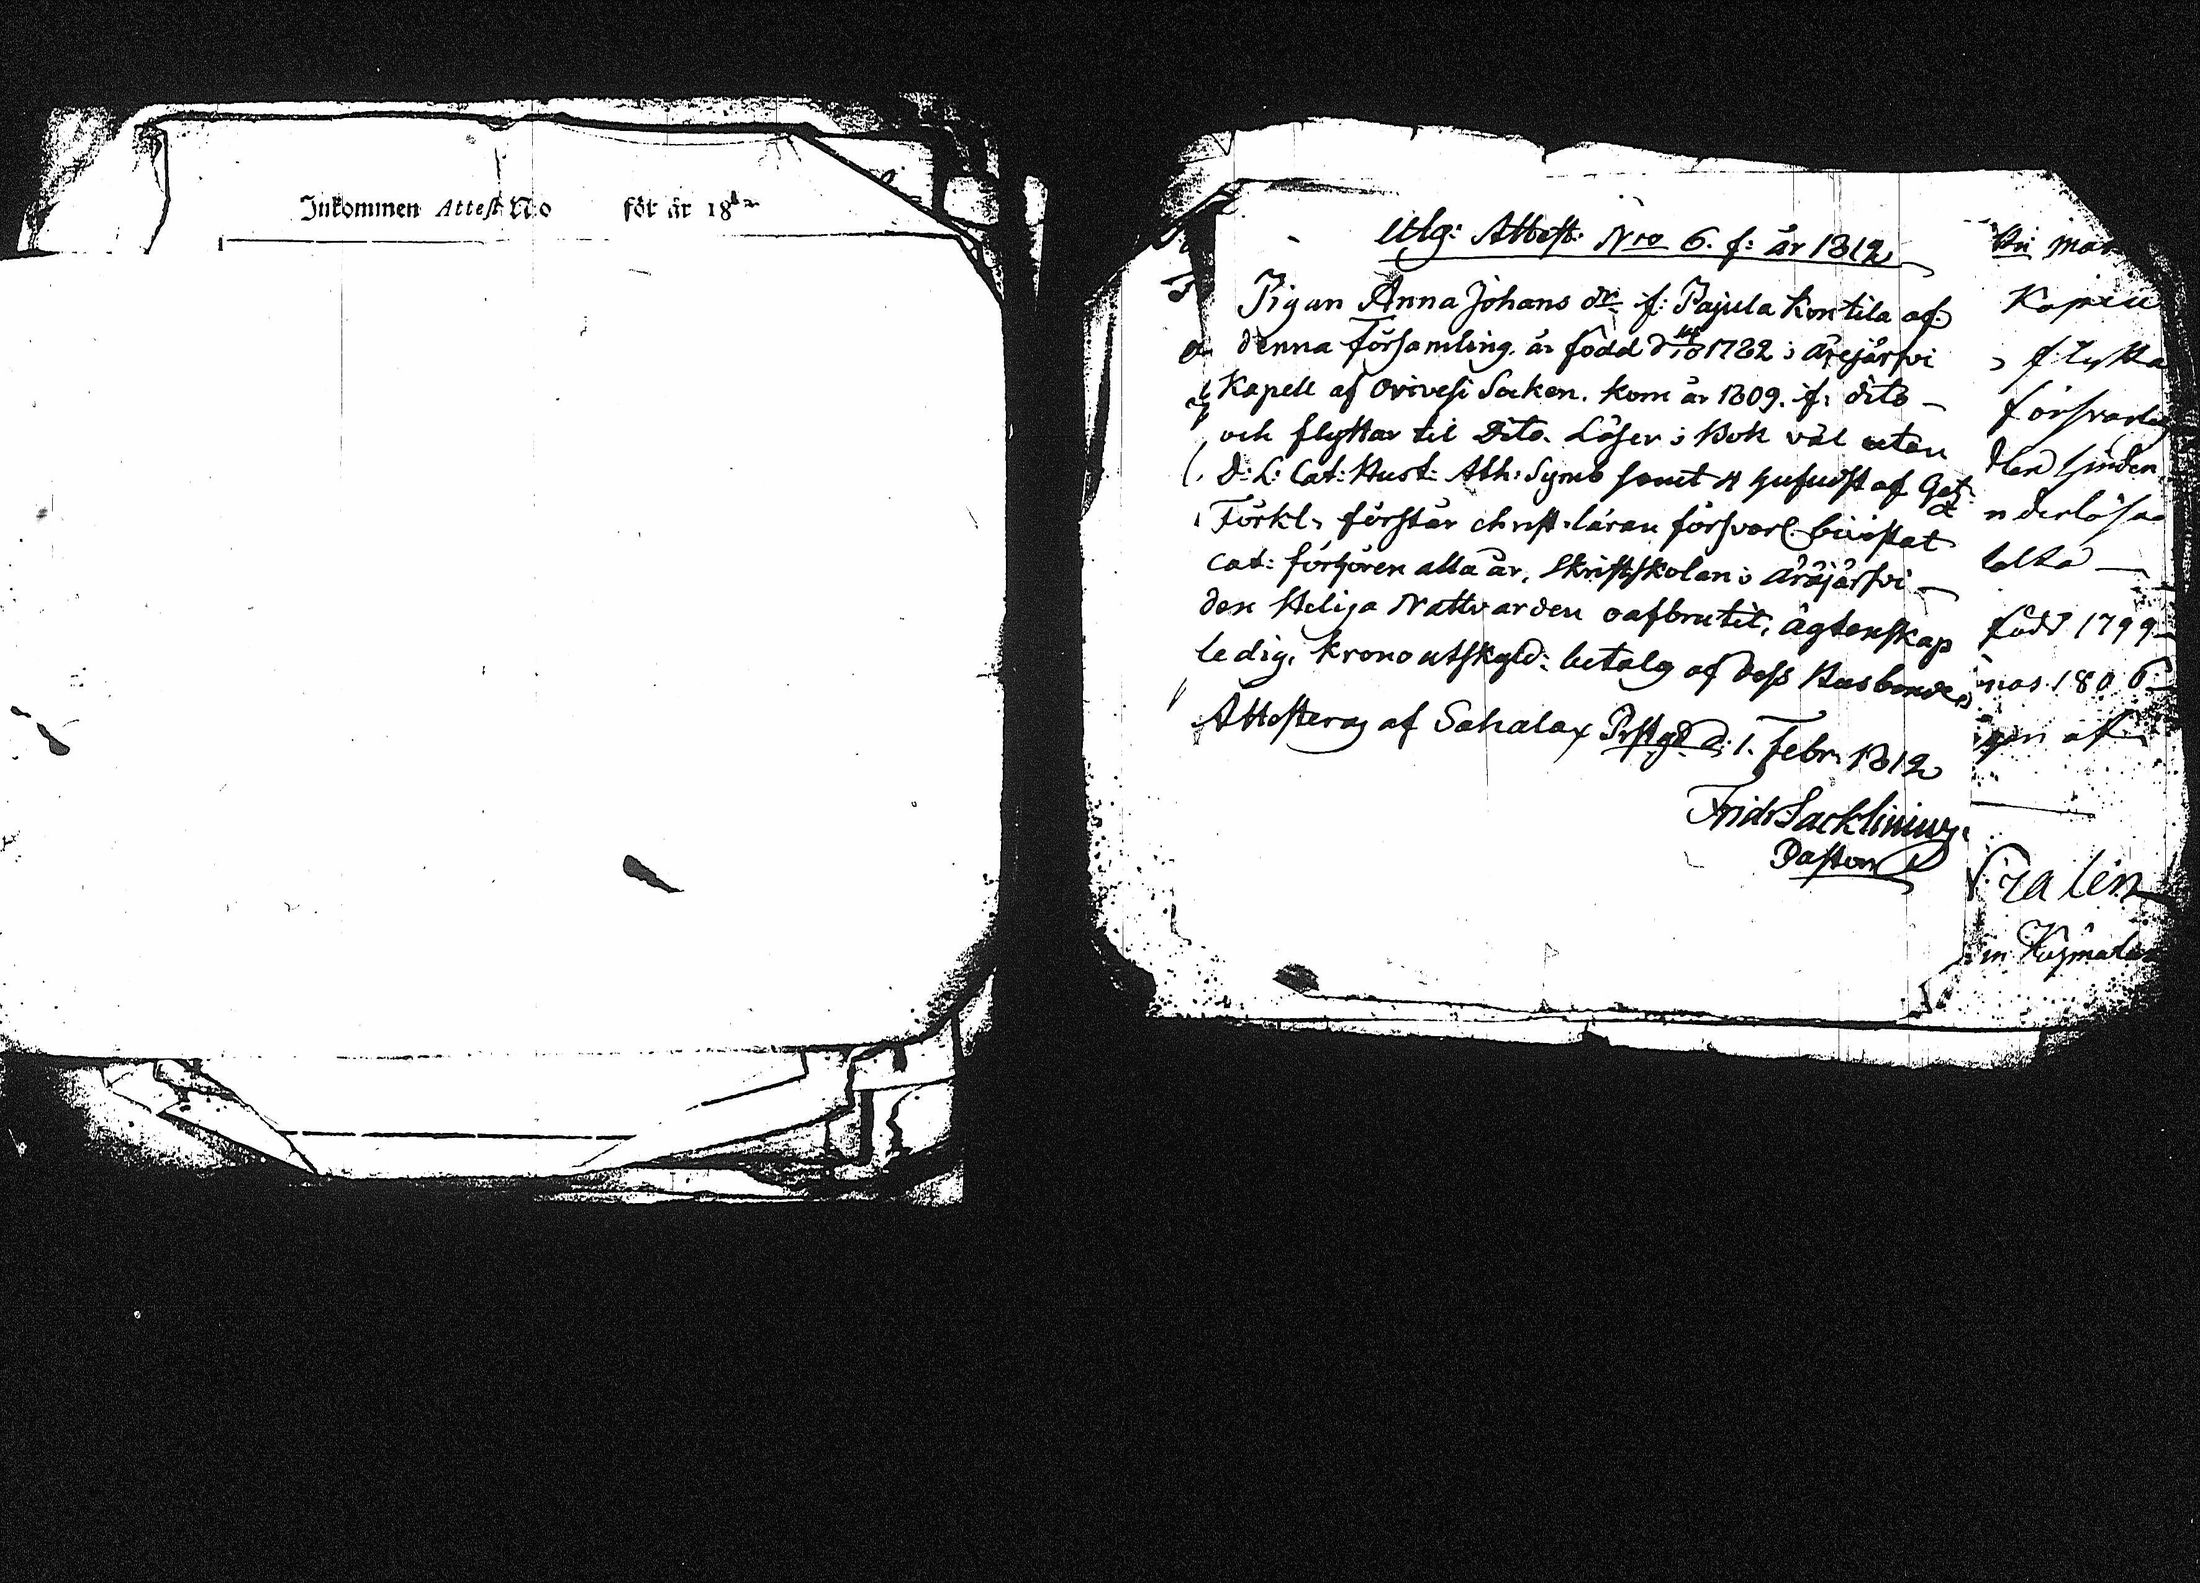 Inkommen Attest No för år 18
Utg: Attest: Nro 6. f: år 1812
Pigan Anna Johans dr f: Pajula Kontila af
denna Församling. är född d 1782 i Äräjärfvi
Kapell af Orivesi Socken. kom år 1809. f: dito
och flyttar til Dito. Läser i Bok väl utan
D: L: Cat: Hust: Ath: Symb samt af
Förkl. förstår christ. läran försvarl. bivistat
Cat: förhören alla år, Skriftskolan i Äräjärfvi
den Heliga Nattvarden oafbrutit, ägtenskap
ledig, Krono utskyld: betalg af dess Husbonde
Attesterag af Sahalax Prstgd d: 1. Febr. 1812
Fridr Sacklinius
Pastor
Kapell
flytta
försvarlig
hinder
född 1799
1806
af